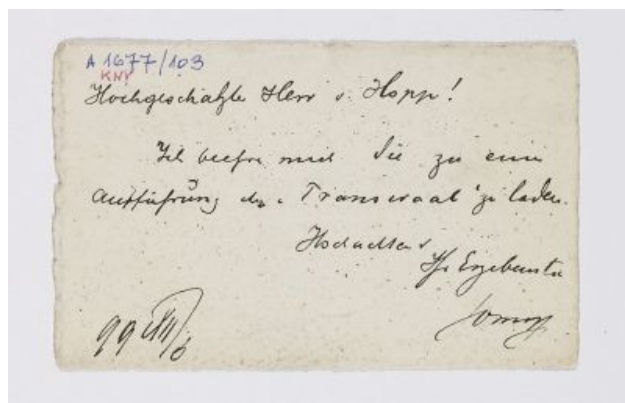 A 1677/103
KNY
Hochgeschätzte Herr v. Hopp!
Ich beehre mich Sie zu eine
Aufführung der „Transvaal" zu laden.
Hochachtend
Ihr Ergebenster
99 XII/6